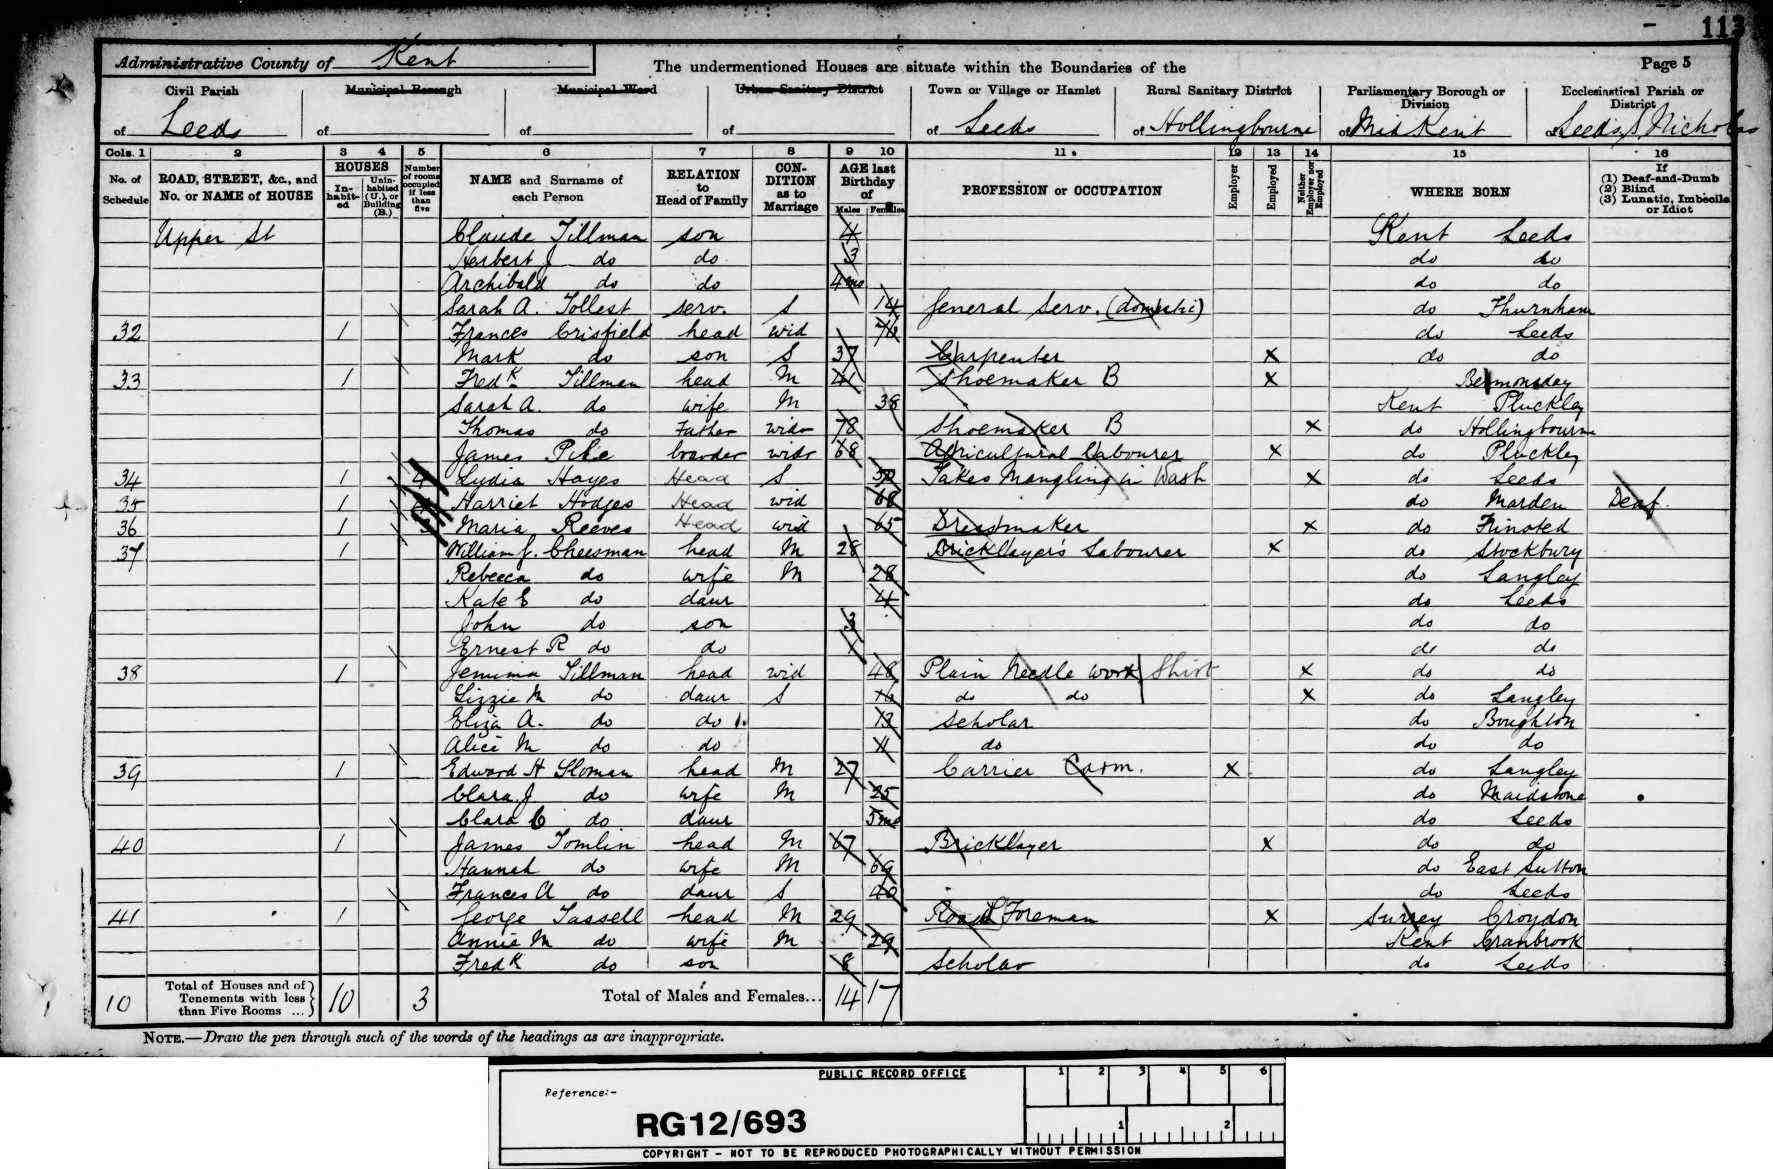 113
Administrative County of Kent
The undermentioned Houses are situate within the Boundaries of the
Page 5
Civil Parish of Leeds
Municipal Borough of
Municipal Ward of
Urban Sanitary District of
Town or Village or Hamlet of Leeds
Rural Sanitary District of Hollingbourne
Parliamentary Borough or Division of Mid Kent
Ecclesiastical Parish or District of Leeds S. Nicholas
Cols. 1 2 3 4 5 6 7 8 9 10 11 12 13 14 15 16
No. of Schedule
ROAD, STREET, &c., and No. or NAME of HOUSE
HOUSES
Inhabited
Uninhabited (U.), or Building (B.)
Number of rooms occupied if less than five
NAME and Surname of each Person
RELATION to Head of Family
CONDITION as to Marriage
AGE last Birthday of
Males Females
PROFESSION or OCCUPATION
Employer
Employed
Neither Employer nor Employed
WHERE BORN
If
(1) Deaf-and-Dumb
(2) Blind
(3) Lunatic, Imbecile or Idiot
Upper St Claude Tillman son 4 Kent Leeds
Herbert J do do 3 do do
Archibald do do 4mo do do
Sarah A. Tollest serv. S 14 General Serv. (domestic) do Thurnham
32 1 Frances Crisfield head wid do Leeds
Mark do son S 37 Carpenter x do do
33 1 Fredk Tillman head M 41 Shoemaker B x Bermondsey
Sarah A. do wife M 38 Kent Pluckley
Thomas do Father widr 78 Shoemaker B x do Hollingbourne
James Pike boarder widr 68 Agricultural Labourer x do Pluckley
34 1 4 Lydia Hayes Head S 50 Takes Mangling in Wash x do Leeds
35 1 Harriet Hodges Head wid 68 do Marden Deaf
36 1 Maria Reeves Head wid 65 Dressmaker x do Frinsted
37 1 William J. Cheesman head M 28 Bricklayer's Labourer x do Stockbury
Rebecca do wife M 28 do Langley
Kate E do daur 4 do Leeds
John do son 3 do do
Ernest R do do 1 do do
38 1 Jemima Tillman head wid 48 Plain Needle work Shirt x do do
Lizzie M do daur S 16 do do x do Langley
Eliza A. do do 13 Scholar do Boughton
Alice M do do 11 do do do
39 1 Edward H Sloman head M 27 Carrier Com. x do Langley
Clara J do wife M 25 do Maidstone
Clara C do daur 5mo do Leeds
40 1 James Tomlin head M 67 Bricklayer x do do
Hannah do wife M 69 do East Sutton
Frances A do daur S 40 do Leeds
41 1 George Tassell head M 29 Road Foreman x Surrey Croydon
Annie M do wife M 29 Kent Cranbrook
Fredk do son 8 Scholar do Leeds
10 Total of Houses and of Tenements with less than Five Rooms ... 10 3 Total of Males and Females... 14 17
NOTE.—Draw the pen through such of the words of the headings as are inappropriate.
PUBLIC RECORD OFFICE
1 2 3 4 5 6
Reference:-
RG12/693
1 2
COPYRIGHT - NOT TO BE REPRODUCED PHOTOGRAPHICALLY WITHOUT PERMISSION